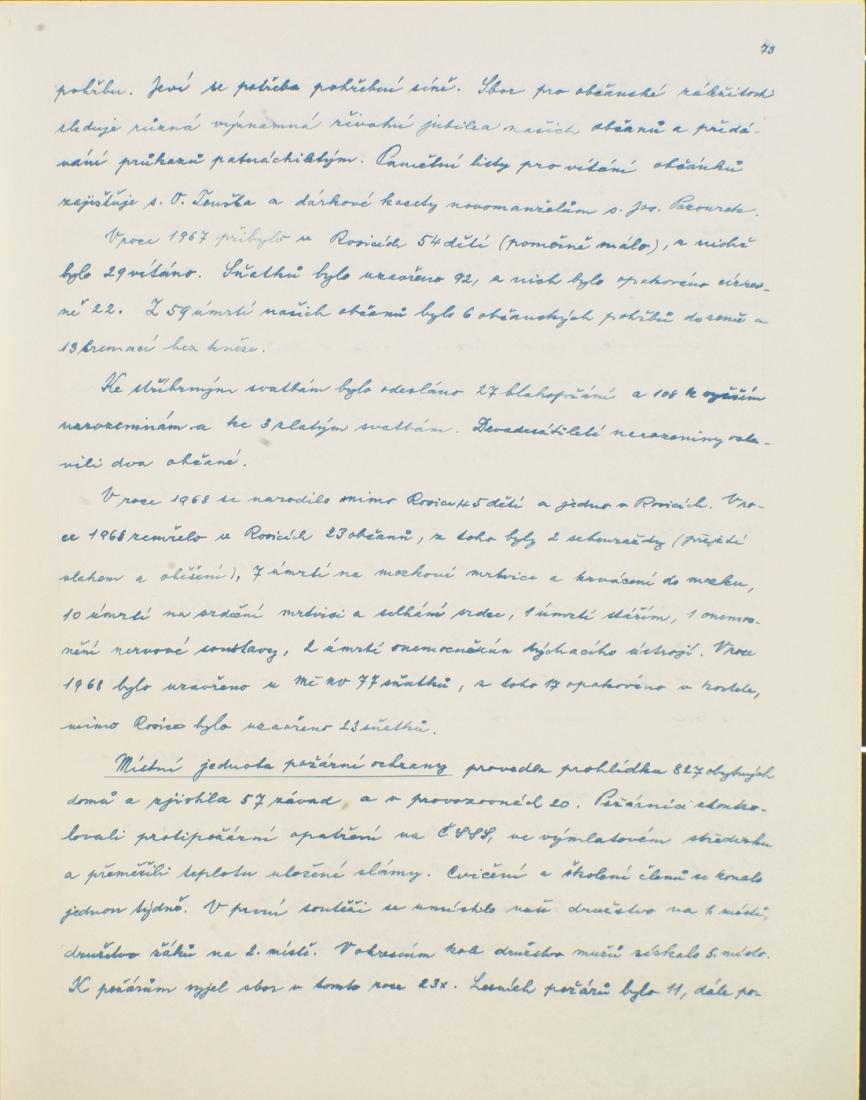 73
pohřbu. Jeví se potřeba pohřební síně. Sbor pro občanské záležitosti
sleduje různá významná životní jubilea našich občanů a předá-
vání průkazů patnáctiletým. Pamětní listy pro vítání občánků
zajišťuje s. O. Touška a dárkové kasety novomanželům s. Jos. Pazourek.
V roce 1967 přibylo v Rosicích 54 dětí (poměrně málo), z nichž
bylo 29 vítáno. Sňatků bylo uzavřeno 92, z nich bylo opakováno církev-
ně 22. Z 59 úmrtí našich občanů bylo 6 občanských pohřbů do země a
13 kremací bez kněze.
Ke stříbrným svatbám bylo odesláno 27 blahopřání a 108 k vyšším
narozeninám a ke 3 zlatým svatbám. Devadesátileté narozeniny osla-
vili dva občané.
V roce 1968 se narodilo mimo Rosice 45 dětí a jedno v Rosicích. V ro-
ce 1968 zemřelo v Rosicích 23 občanů, z toho byly 2 sebevraždy (přejetí
vlakem a oběšení), 7 úmrtí na mozkové mrtvice a krvácení do mozku,
10 úmrtí na srdeční mrtvici a selhání srdce, 1 úmrtí stářím, 1 onemoc-
nění nervové soustavy, 2 úmrtí onemocněním dýchacího ústrojí. V roce
1968 bylo uzavřeno u MěNV 77 sňatků, z toho 17 opakováno v kostele,
mimo Rosice bylo uzavřeno 23 sňatků.
Místní jednota požární ochrany provedla prohlídku 827 obytných
domů a zjistila 57 závad a v provozovnách 20. Požárníci zkontro-
lovali protipožární opatření na ČSSS, ve výmlatovém středisku
a přeměřili teplotu uložené slámy. Cvičení a školení členů se konalo
jednou týdně. V první soutěži se umístilo naše družstvo na 1. místě,
družstvo žáků na 2. místě. V okresním kole družstvo mužů získalo 5. místo.
K požárům vyjel sbor v tomto roce 23x. Lesních požárů bylo 11, dále po-